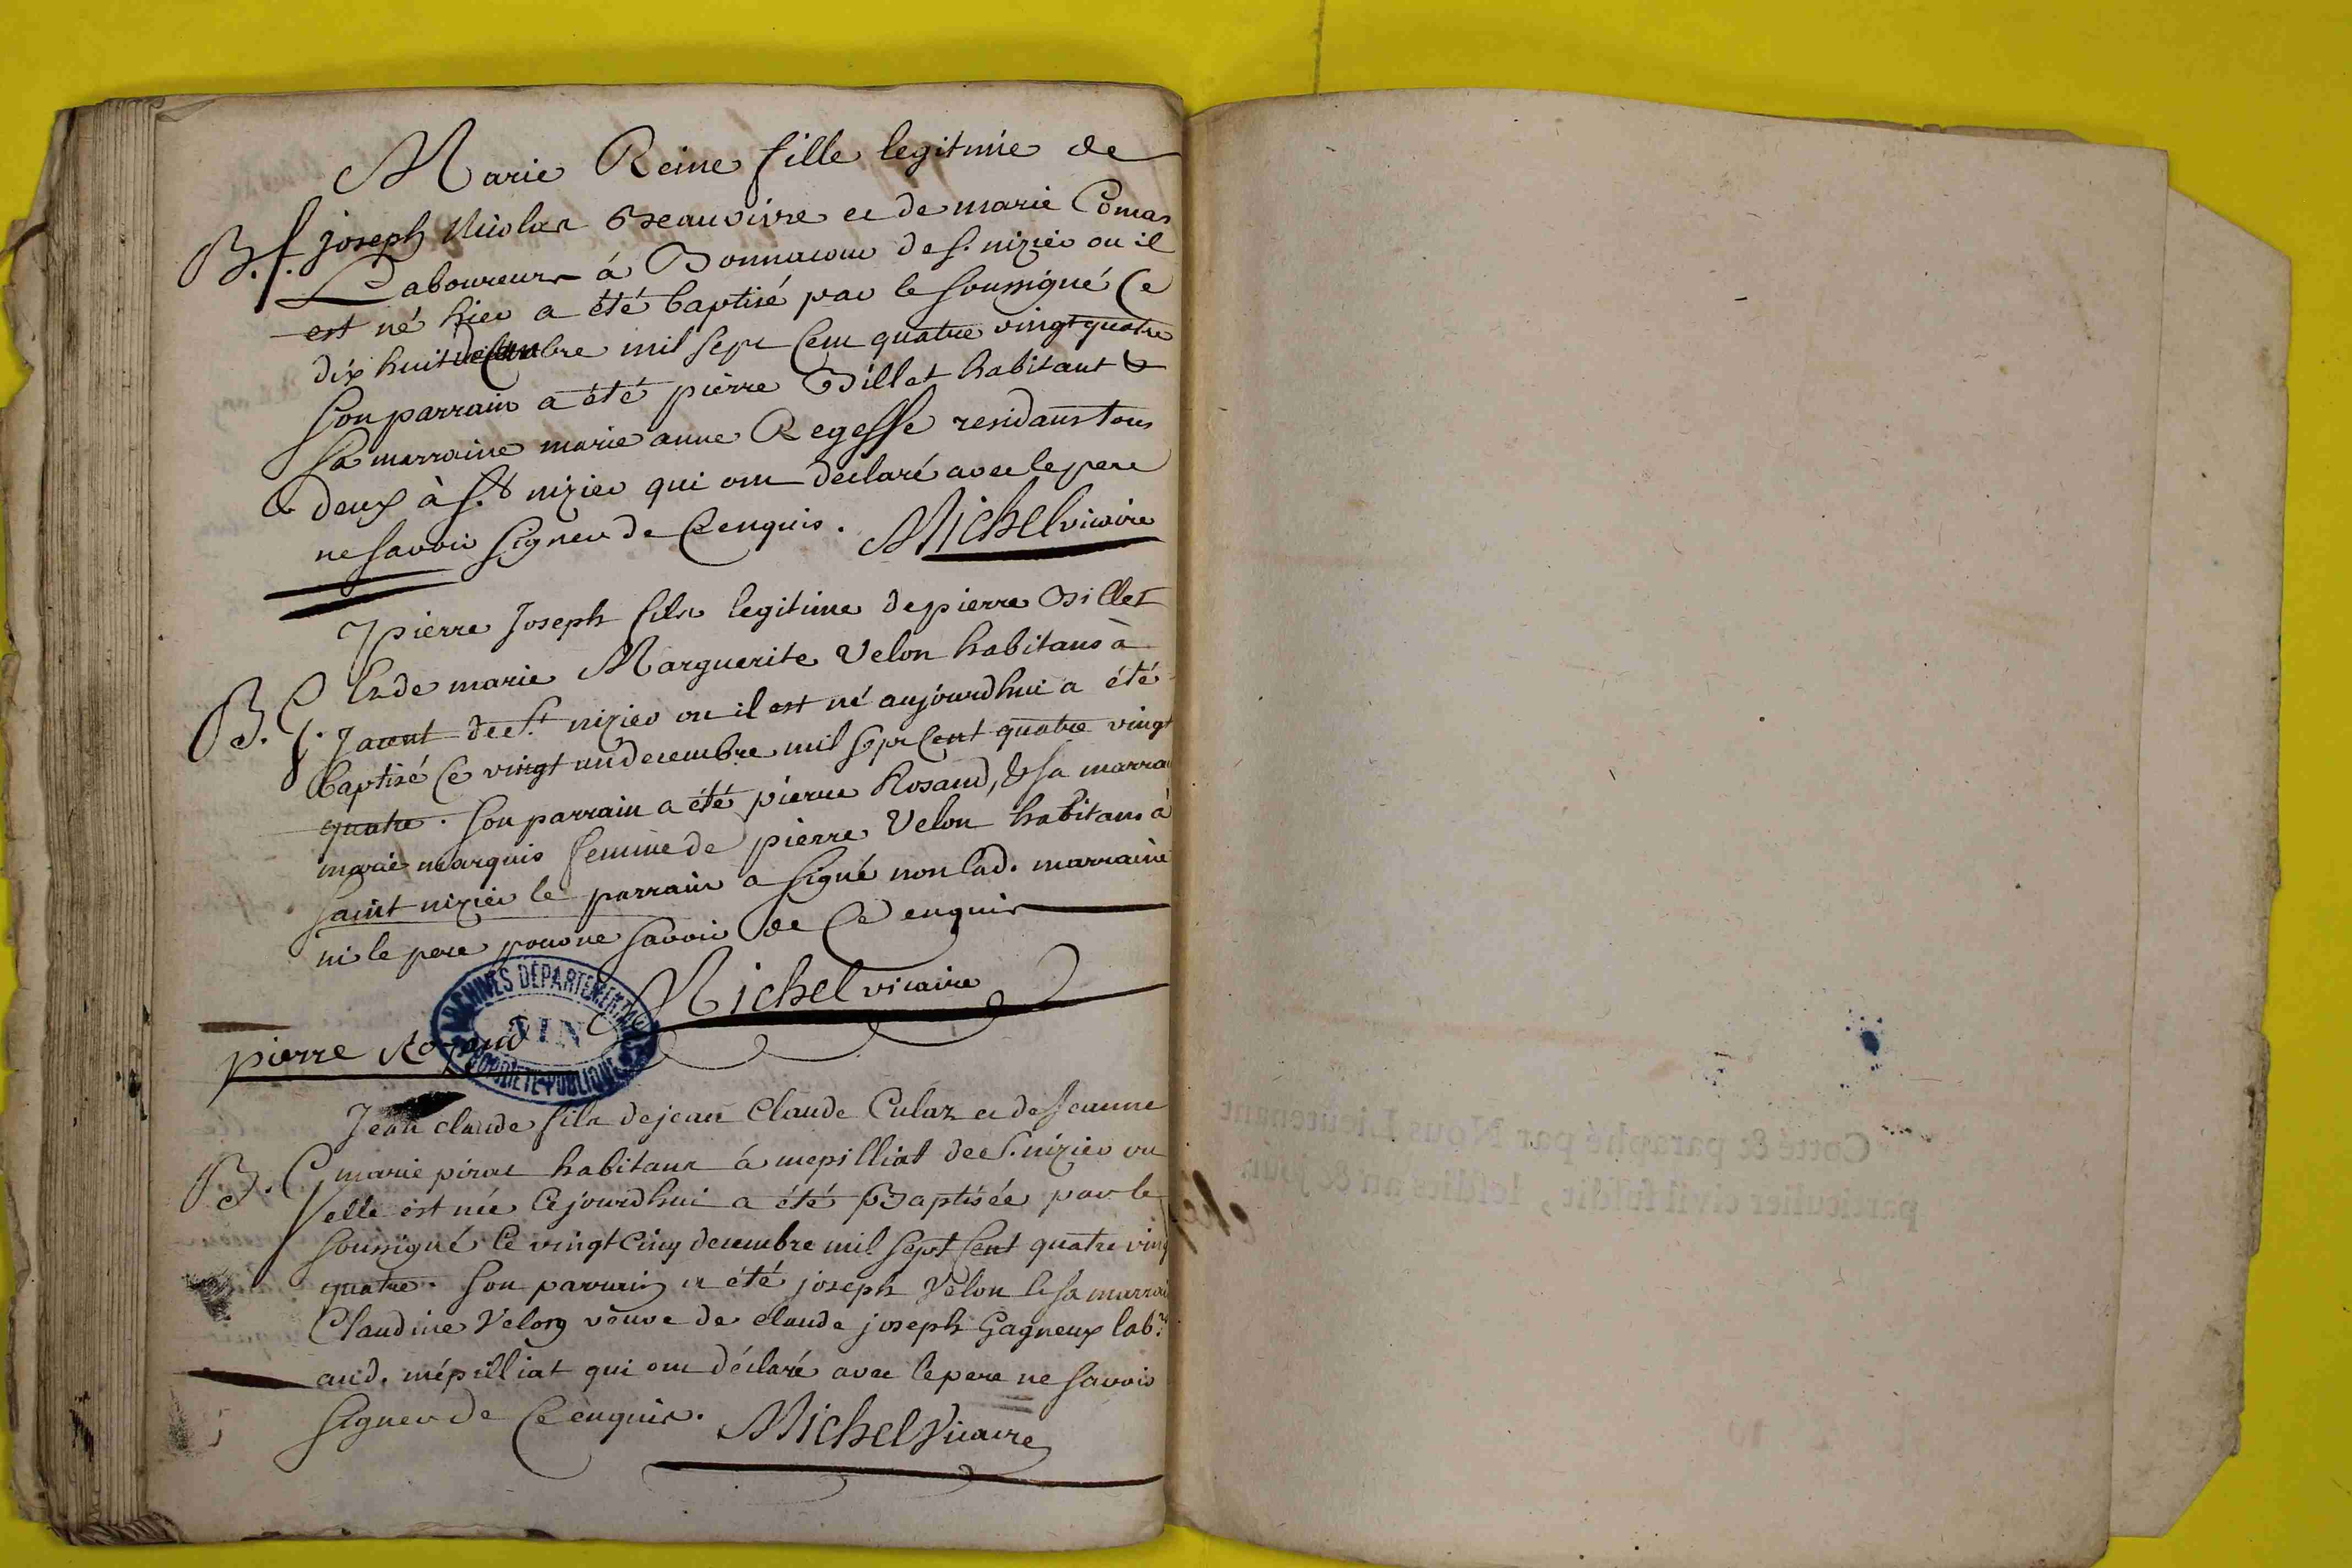 Marie Reine fille legitime de
B. f. joseph Nicolas Beauvivre et de marie Comas
Laboureurs á Bonnacour de S. nizier ou il
est né hier a été baptisé par le soussigné Ce
dix huit decembre mil sept Cent quatre vingt quatre
Son parrain a été pierre Billet habitant &
Sa marraine marie anne Regesse residans tous
deux à S.t nizier qui ont déclaré avec le pere
ne savoir signer de Ce enquis. Michel vicaire
pierre Joseph fils legitime de pierre Billet
Et de marie Marguerite Velon habitans à
B. G. Jacent de St nizier ou il est né aujourdhui a été
baptisé Ce vingt un decembre mil sept Cent quatre vingt
quatre. Son parrain a été pierre Rosand, & sa marrai
marie marquis femme de pierre Velon habitans à
Saint nizier le parrain a signé non lad. marraine
ni le pere pour ne savoir de Ce enquis
Michel vicaire
ARCHIVES DÉPARTEMENTALES
AIN
PROPRIÉTÉ PUBLIQUE
pierre Rosand
Jean claude fils de jean Claude Culaz et de Jeanne
B. G marie pirat habitans á mepilliat de S. nizier ou
elle est née Cejourdhui a été Baptisée par le
soussigné Ce vingt Cinq decembre mil sept Cent quatre ving
quatre. Son parrain a été joseph Velon & sa marrai
Claudine Velon veuve de claude joseph Gagneux lab.rs
aud. mépilliat qui ont déclaré avec le pere ne savoir
signer de Ce enquis. Michel Vicaire
Cotté & paraphé par Nous Lieutenant
particulier civil susdit, lesdits an & jour.